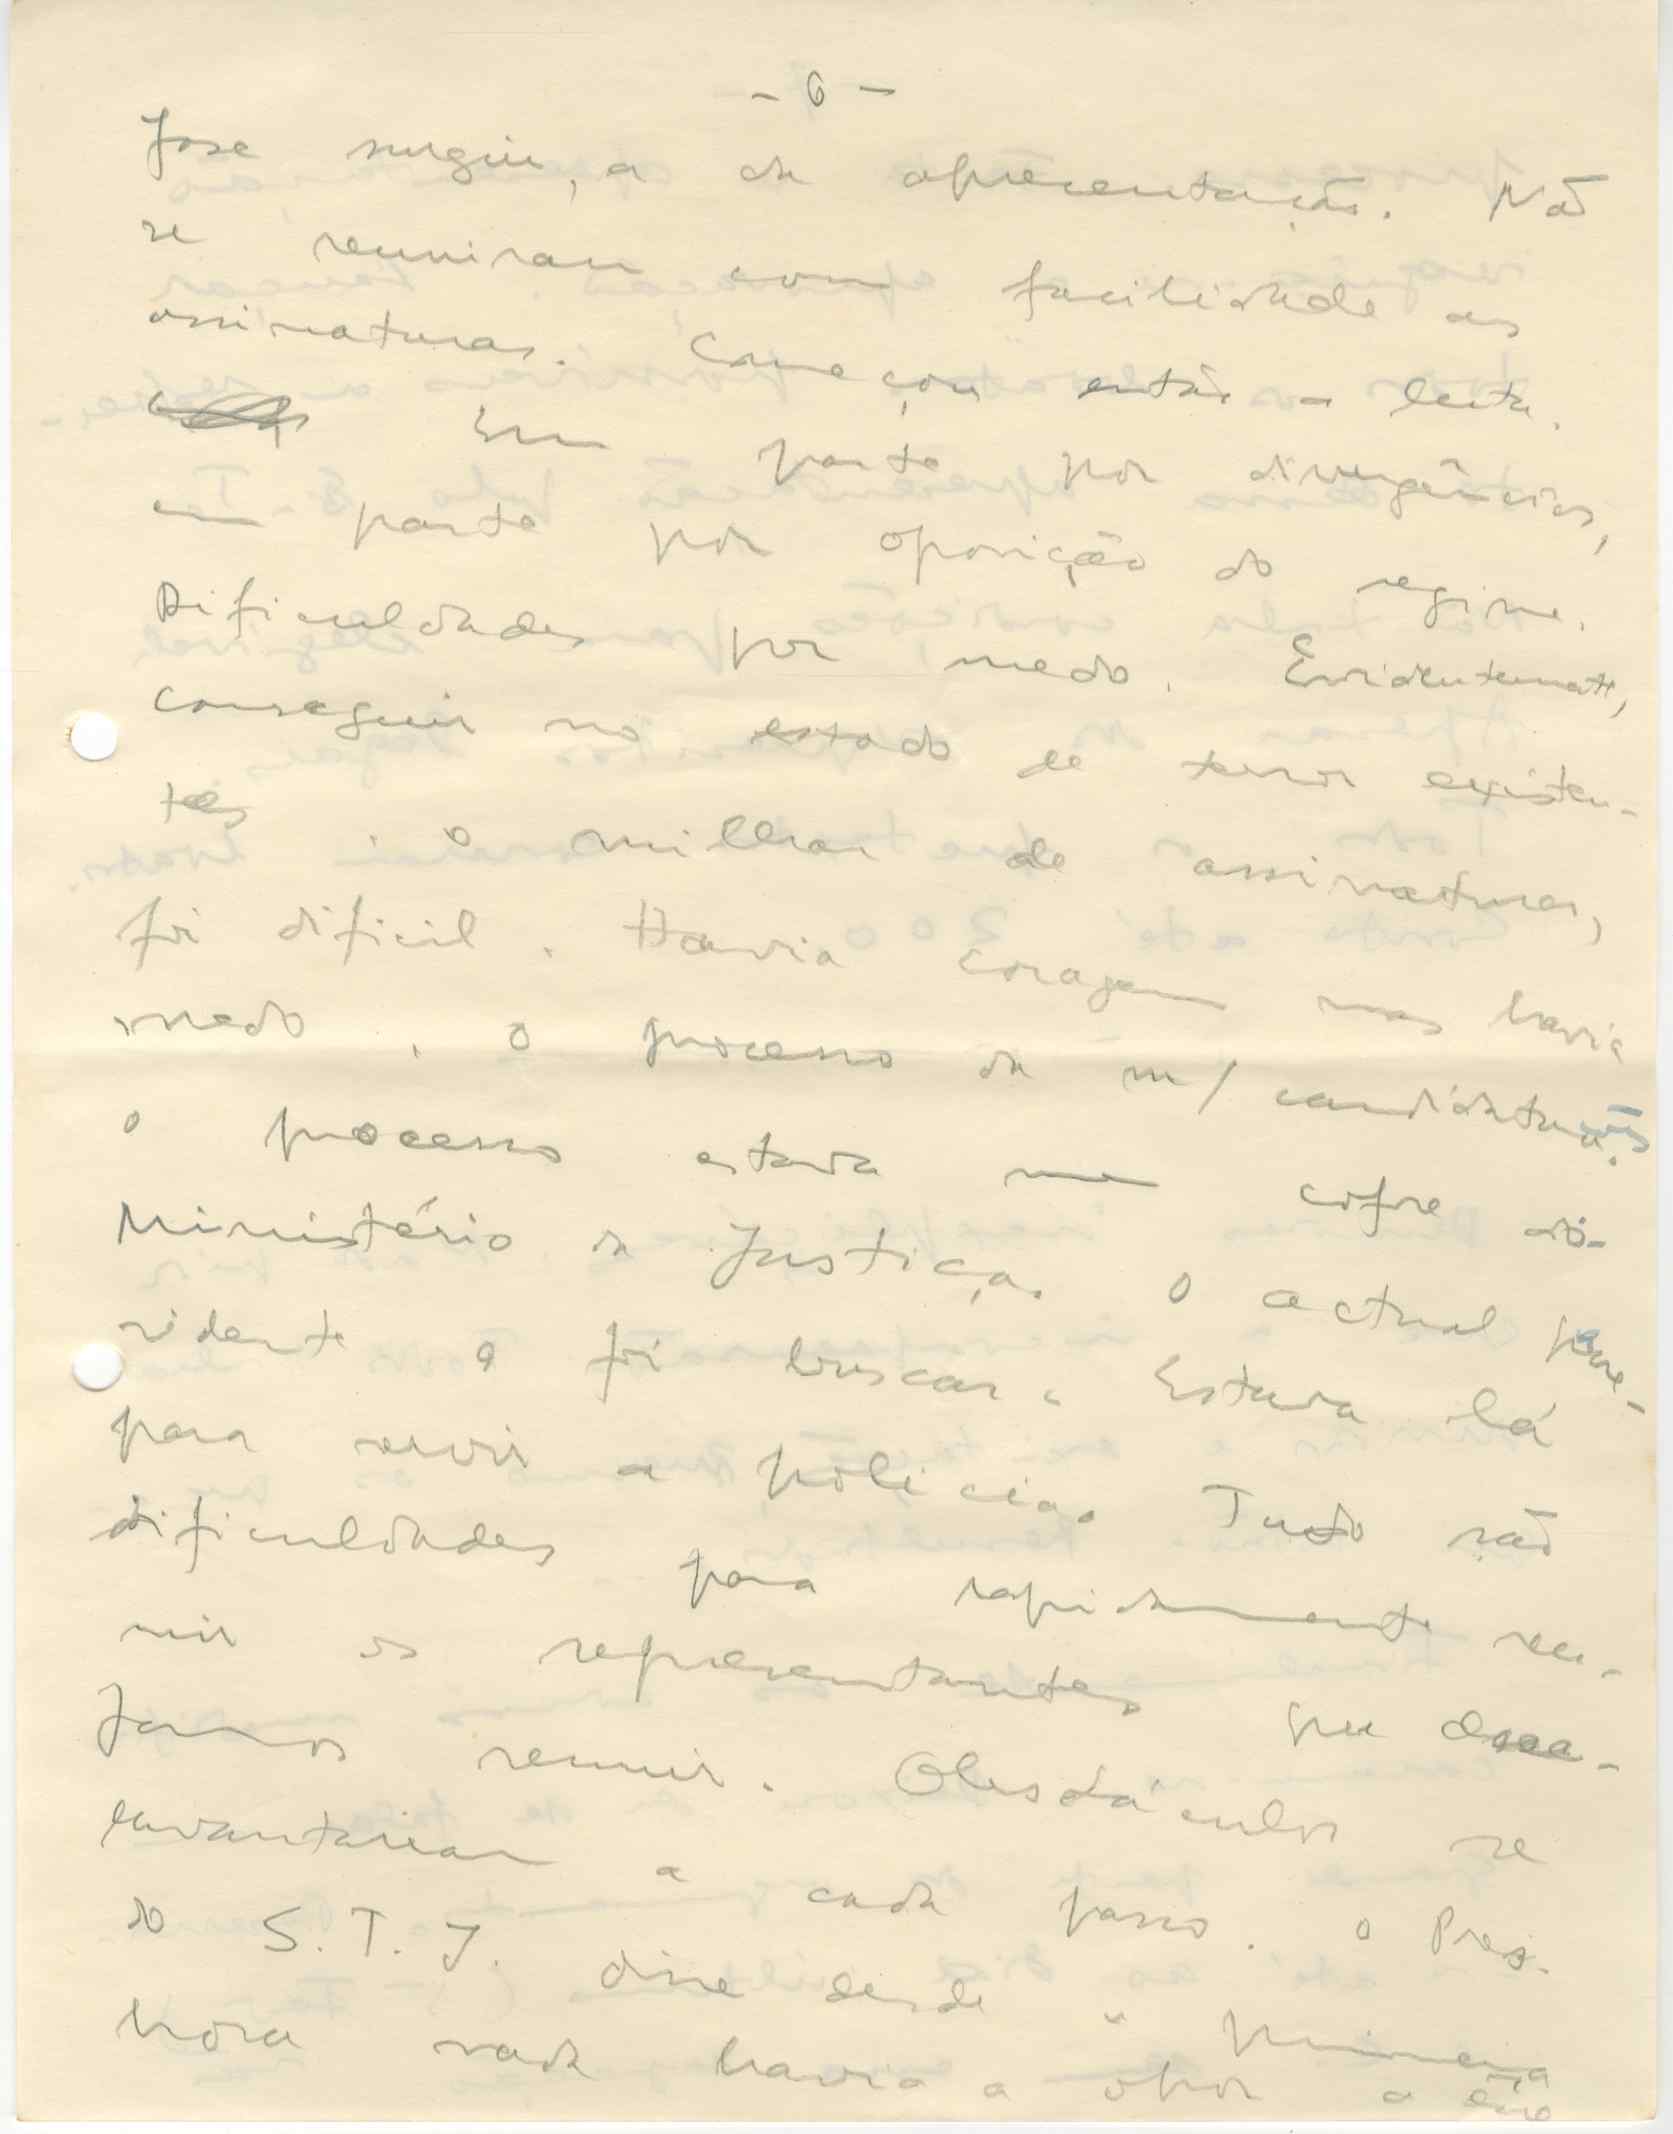 - 6 -
fase surgiu, a da apresentação. Não
se reuniram com facilidade as
assinaturas. Começou então a luta.
Em parte por divergências,
em parte por oposição do regime.
Dificuldades por medo. Evidentemente,
conseguir no estado de terror existen-
tes o milhar de assinaturas,
foi dificil. Havia coragem mas havia
medo. O processo da m/ candidatura
o processo estava num cofre do
Ministério da Justiça. O actual pre-
sidente o foi buscar. Estava lá
para servir a policia. Tudo são
dificuldades para rapidamente reu-
nir os representantes que
jamos reunir. Obstáculos se
levantariam a cada passo. O Pres.
do S.T.J. disse desde a primeira
hora nada havia a opor a